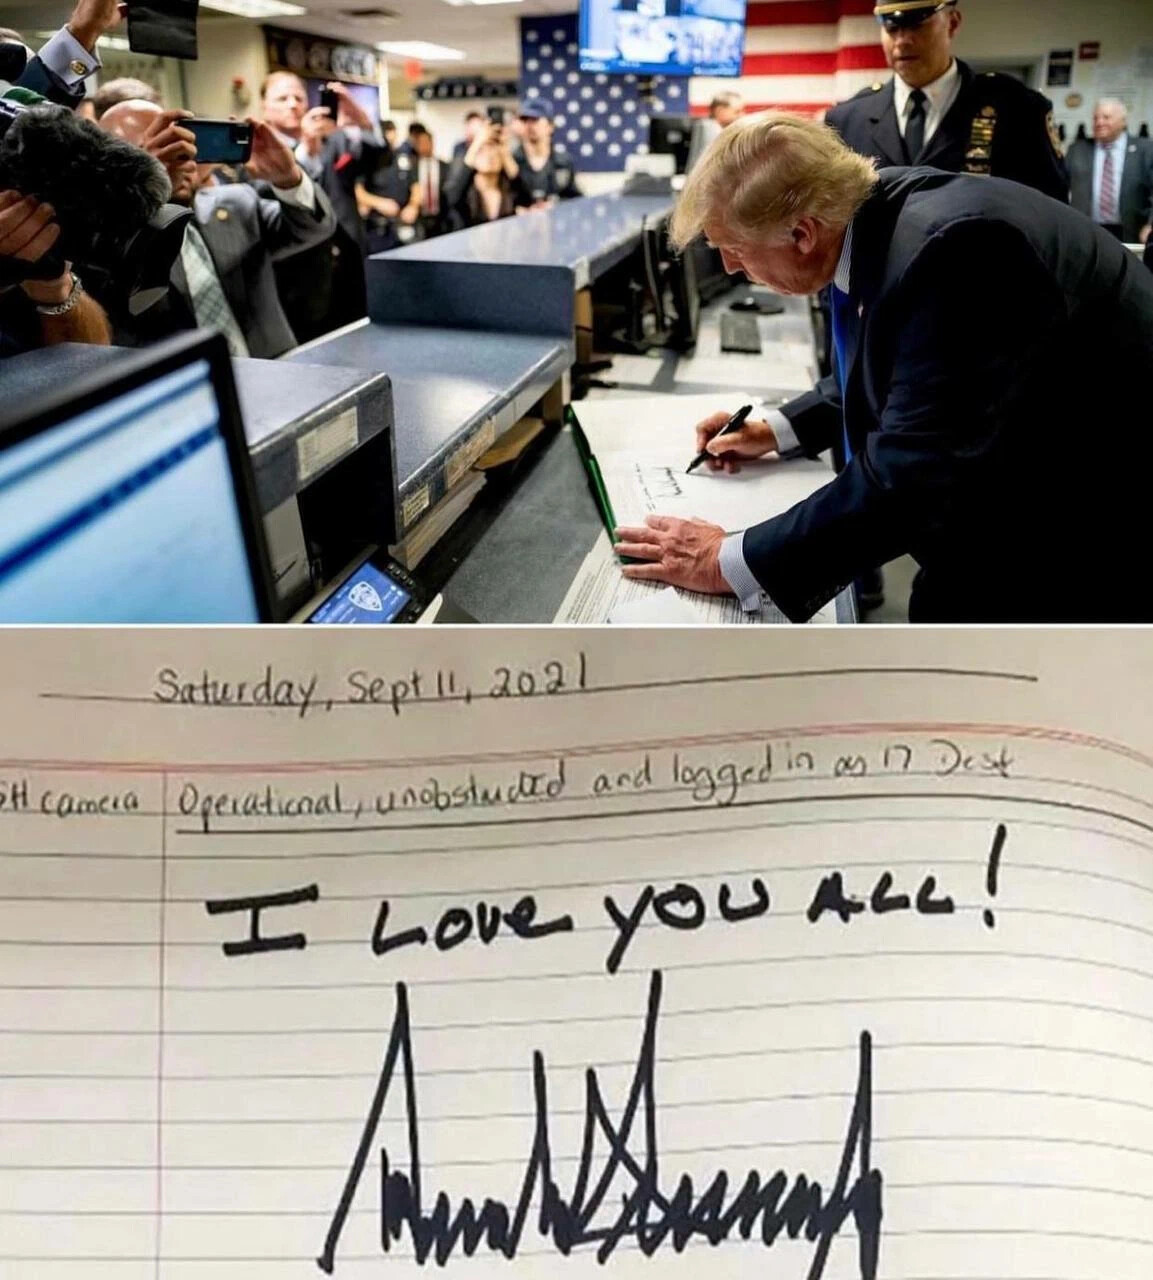 Saturday, Sept 11, 2021
camera
Operational, unobstructed and logged in on 17 Desk
I Love you ALL!